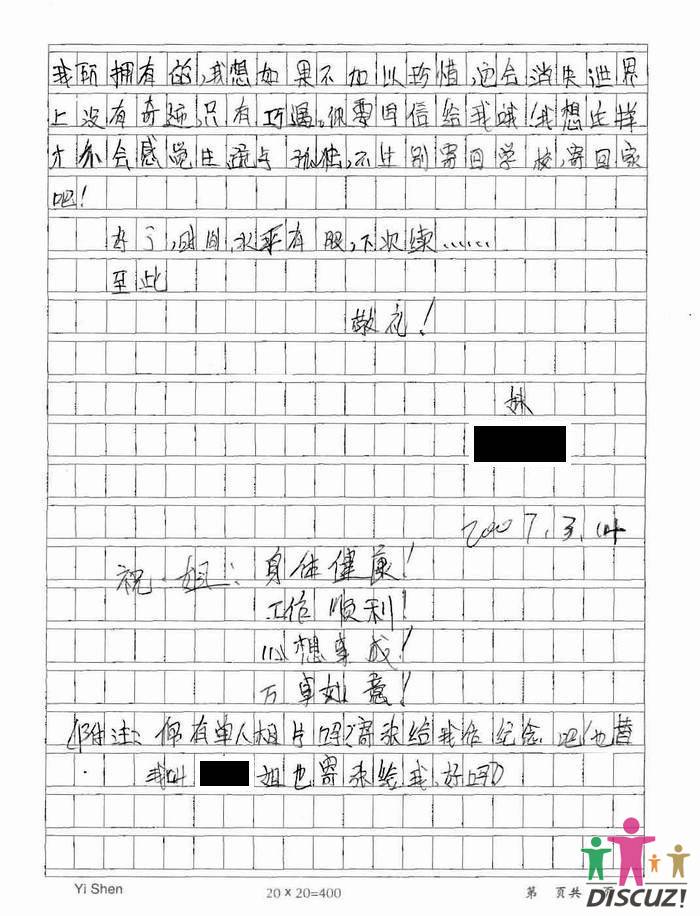 我所拥有的,我想如果不加以珍惜,它会消失进界
上没有奇迹,只有巧遇。你要回信给我哦!我想这样
才不会感觉生疏与孤独,不过别寄回学校,寄回家
吧!
好了,时间,水平有限,下次续……
至此
敬礼!
妹
2007.3.14
祝 姐:身体健康!
工作顺利!
心想事成!
万事如意!
(附注:你有单人相片吗?寄张给我作纪念吧也替
我叫 姐也寄张给我,好吗?)
Yi Shen
20×20=400
第 页共 页
DISCUZ!